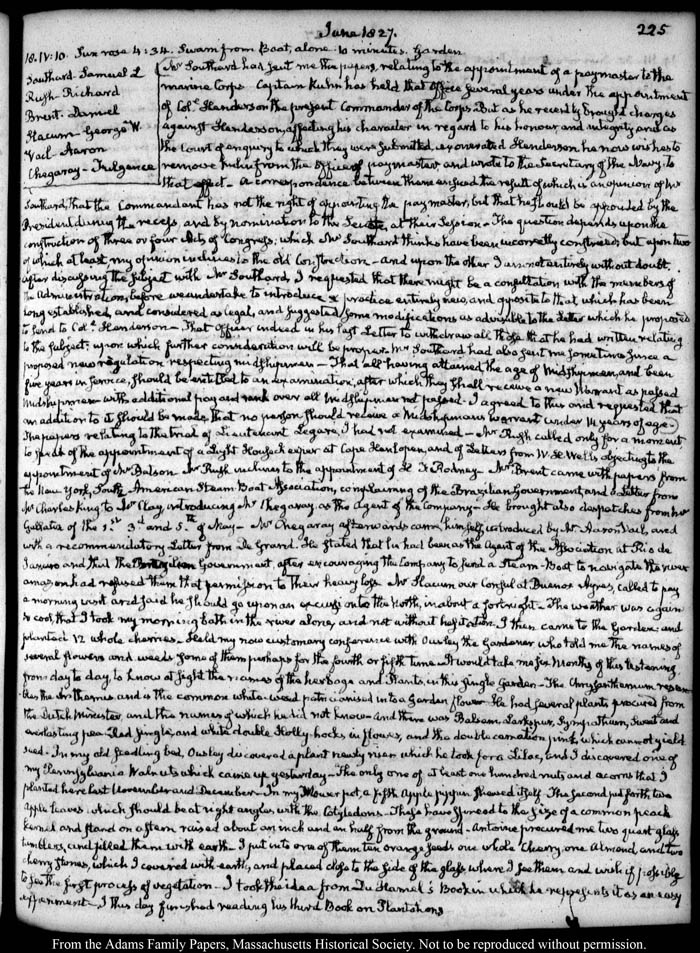 June 1827.
225
18. IV:10. Sun rose 4:34. Swam from Boat, alone 10 minutes. Garden
Southard. Samuel L
Rush Richard
Brent. Daniel
Slacum—George W.
Vail Aaron
Chegaray—Indigence
Mr Southard has sent me the papers, relating to the appointment of a paymaster to the
marine Corps. Captain Kuhn has held that Office several years under the appointment
of Coll. Henderson the present Commander of the Corps. But as he recently brought charges
against Henderson, affecting his character in regard to his honour and integrity and as
the Court of enquiry to which they were submitted, exonerated Henderson he now wishes to
remove Kuhn from the Office of paymaster, and wrote to the Secretary of the Navy, to
that effect—A correspondence between them ensued the result of which is an opinion of Mr
Southard, that the Commandant has not the right of appointing the paymaster, but that he should be appointed by the
President during the recess, and by nomination to the Senate, at their Session—The question depends upon the
construction of three or four Acts of Congress; which Mr Southard thinks have been incorrectly construed; but upon two
of which at least my opinion inclines to the old Construction—and upon the other I am not entirely without doubt.
After discussing the subject with Mr Southard, I requested that there might be a consultation with the members of
the Administration, before we undertake to introduce a practice entirely new, and opposite to that which has been
long established, and considered as legal, and suggested some modifications as advisable to the Letter which he proposes
to send to Coll. Henderson—That Officer indeed in his last Letter to withdraw all that he had written relating
to the subject; upon which further consideration will be proper. Mr Southard had also sent me sometime since a
proposed new regulation respecting midshipmen—That all having attained the age of Midshipmen, and been
five years in service, should be entitled to an examination, after which they shall receive a new Warrant as passed
Midshipmen—with additional pay and rank over all Midshipmen not passed. I agreed to this and requested that
an addition to it should be made that no person should receive a Midshipman's warrant under 14 years of age—
The papers relating to the trial of Lieutenant Legare, I had not examined—Mr Rush called only for a moment
to speak of the appointment of a Light House keeper at Cape Henlopen, and of Letters from W. H. Wells objecting to the
appointment of Mr Batson. Mr Rush inclines to the appointment of H F Rodney—Mr Brent came with papers from
the New York, South American Steam Boat Association, complaining of the Brazilian Government, and a Letter from
Mr Charles King to Mr Clay, introducing Mr Chegaray, as the Agent of the Company—He brought also despatches from Mr
Gallatin of the 1st 3d and 5th of May—Mr Chegaray afterwards came himself, introduced by Mr Aaron Vail, and
with a recommendatory Letter from De Grand. He stated that he had been as the Agent of the Association at Rio de
Janeiro and that the Brazilian Government, after encouraging the Company to send a Steam-Boat to navigate the river
amazon had refused them that permission to their heavy loss. Mr Slacum our Consul at Buenos Ayres, called to pay
a morning visit and said he should go upon an excursion to the North, in about a fortnight—The weather was again
so cool, that I took my morning bath in the river alone, and not without hesitation. I then came to the Garden and
planted 12 whole cherries—Held my now customary conference with Ousley the Gardener who told me the names of
several flowers and weeds some of them perhaps for the fourth or fifth time—It would take me six Months of this listening
from day to day, to know at sight the names of the herbage and Plants, in this single Garden—The Chrysanthemum resem-
bles the Anthemis and is the common white-weed patricianised into a Garden flower. He had several plants procured from
the Dutch Minister, and the names of which he did not know—And there was Balsam, Larkspur, Symphitum, Sweet and
everlasting pea—Red single, and white double Holly hocks in flower, and the double carnation pink, which cannot yield
seed—In my old Seedling bed, Ousley discovered a plant newly risen which he took for a Lilac, and I discovered one of
my Pennsylvania Walnuts which came up yesterday—The only one of at least one hundred nuts and acorns that I
planted here last November and December—In my flower pot, a fifth Apple pippin shewed itself. The second put forth, two
apple leaves which should be at right angles with the Cotyledons—These have spread to the size of a common peach
kernel and stand on a stem raised about an inch and an half from the ground—Antoine procured me two quart glass
tumblers, and filled them with earth—I put into one of them ten orange seeds one whole Cherry one Almond, and two
cherry stones, which I covered with earth, and placed close to the side of the glass, where I see them and wish if possible
to see the first process of vegetation—I took the idea from Du Hamel's Book in which he represents it as an easy
experiment—I this day finished reading his third Book on Plantations
From the Adams Family Papers, Massachusetts Historical Society. Not to be reproduced without permission.